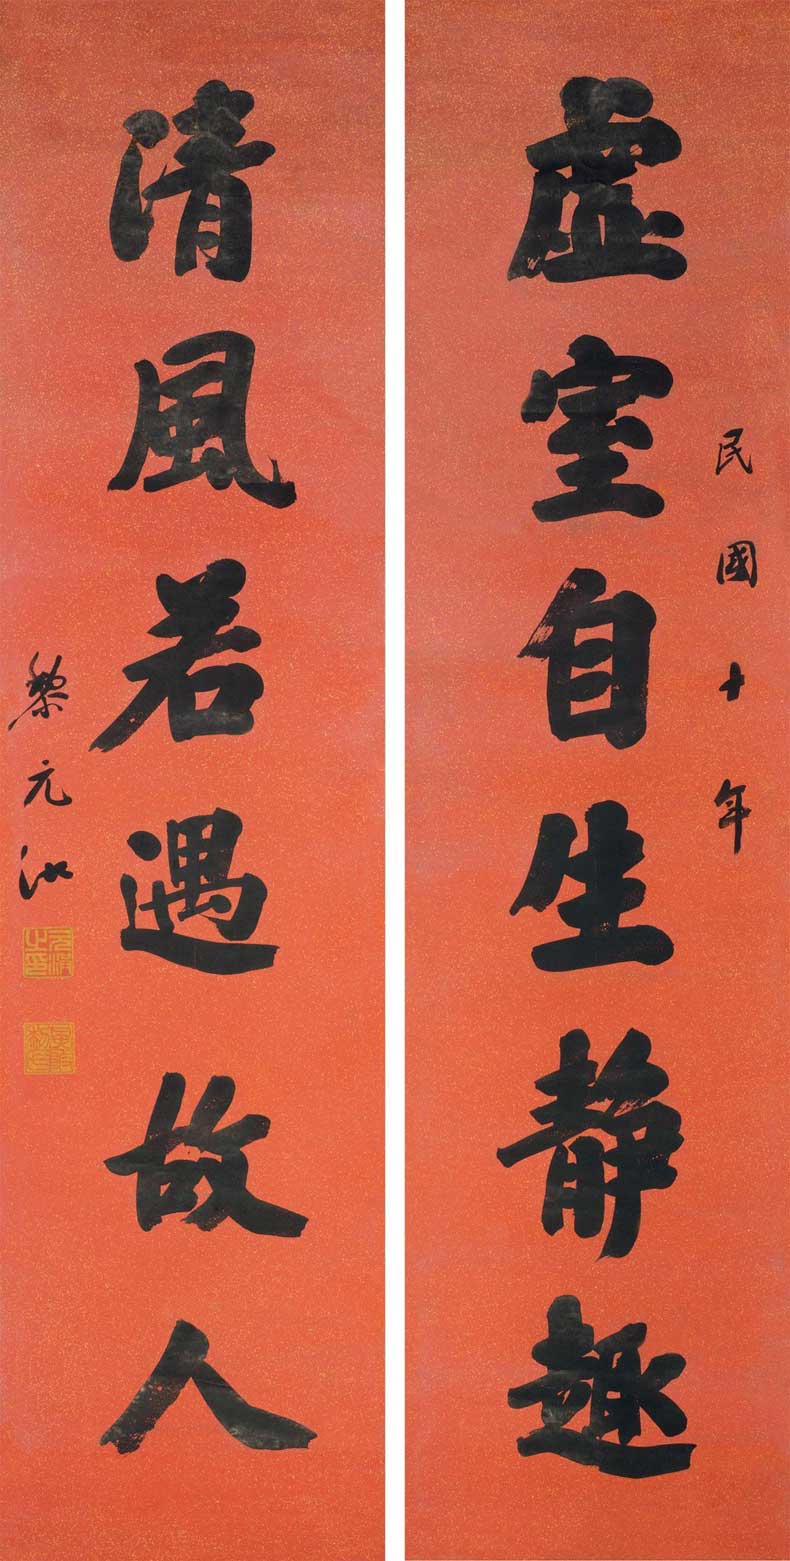 虛室自生靜趣
民國十年
清風若遇故人
黎元洪